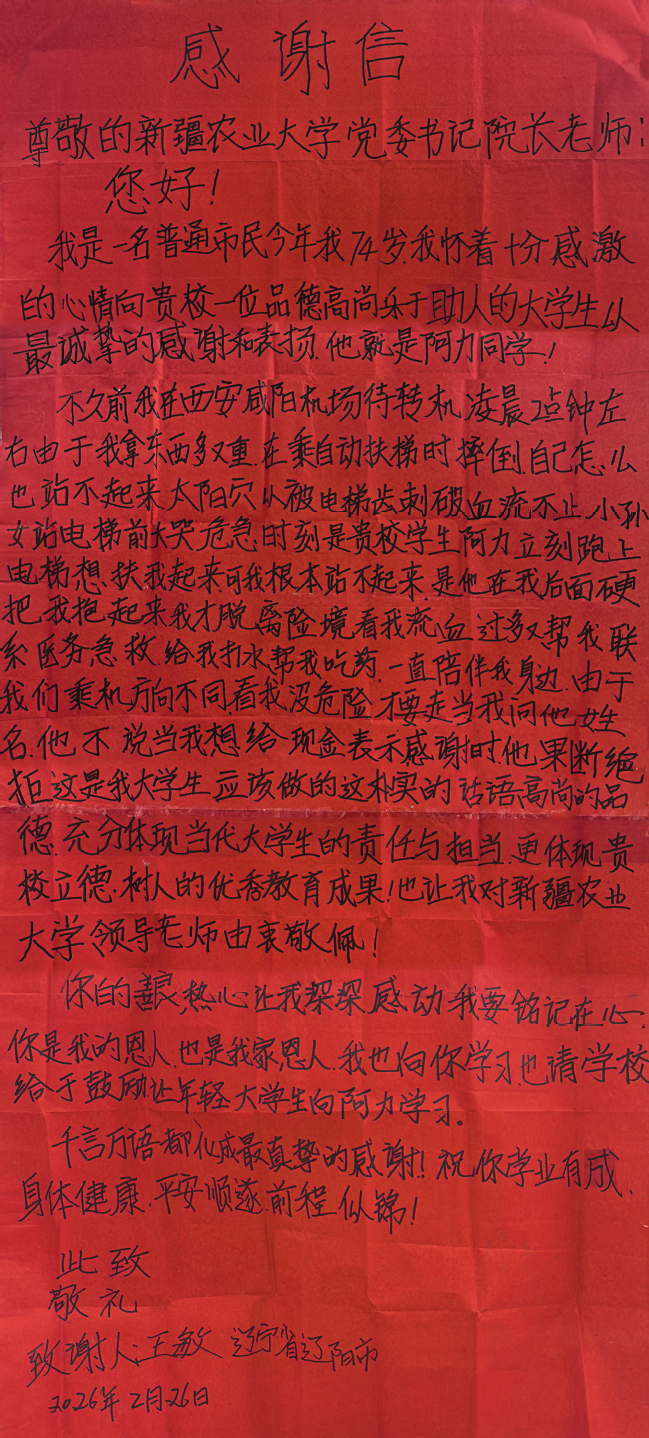 感谢信
尊敬的新疆农业大学党委书记院长老师:
您好!
我是一名普通市民今年我74岁我怀着十分感激
的心情向贵校一位品德高尚乐于助人的大学生以
最诚挚的感谢和表扬.他就是阿力同学!
不久前我在西安咸阳机场待转机凌晨2点钟左
右由于我拿东西多又重.在乘自动扶梯时摔倒.自己怎么
也站不起来太阳穴从被电梯齿刺破血流不止.小孙
女站电梯前大哭危急时刻是贵校学生阿力立刻跑上
电梯想扶我起来可我根本站不起来.是他在我后面硬
把我抱起来我才脱离险境看我流血过多又帮我联
系医务急救给我打水帮我吃药.一直陪伴我身边.由于
我们乘机方向不同.看我没危险才要走当我问他姓
名.他不说当我想给现金表示感谢时.他果断绝
拒这是我大学生应该做的这朴实的话语高尚的品
德.充分体现当代大学生的责任与担当.更体现贵
校立德.树人的优秀教育成果!也让我对新疆农业
大学领导老师由衷敬佩!
你的善良,热心让我深深感动我要铭记在心.
你是我的恩人.也是我家恩人.我也向你学习也请学校
给于鼓励让年轻大学生向阿力学习。
千言万语都化成最真挚的感谢!祝你学业有成.
身体健康.平安顺遂.前程似锦!
此致
敬礼
致谢人:王敏 辽宁省辽阳市
2026年2月26日